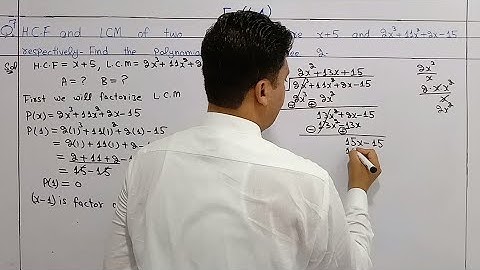 Q7 H.C.F and LCM of two x+5 and 2x³+11x²+2x-15
respectively. Find the Polynomia 2.
Sol H.C.F = x+5, L.C.M = 2x³+11x²+2
A = ? B = ?
First we will factorize L.C.M
P(x) = 2x³+11x²+2x-15
P(1) = 2(1)³+11(1)²+2(1)-15
= 2(1)+11(1)+2
= 2+11+2-1
= 15-15
P(1) = 0
(x-1) is factor
2x²+13x+15
2x³+11x²+2x-15
2x³ 2x²
13x²+2x-15
13x²-13x
15x-15
1
2x³
x
2·x·x²
x
2x²